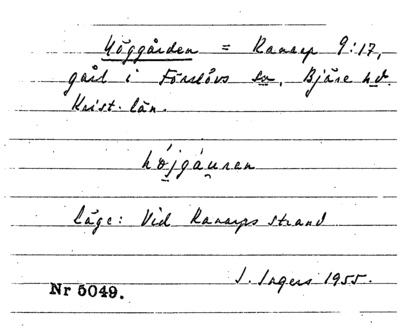 Höggården = Ranarp 9:17,
gård i Förslövs sn, Bjäre hd.
Krist. län.
höjgáuren
Läge: Vid Ranarps strand
J. Ingers 1955.
Nr 5049.